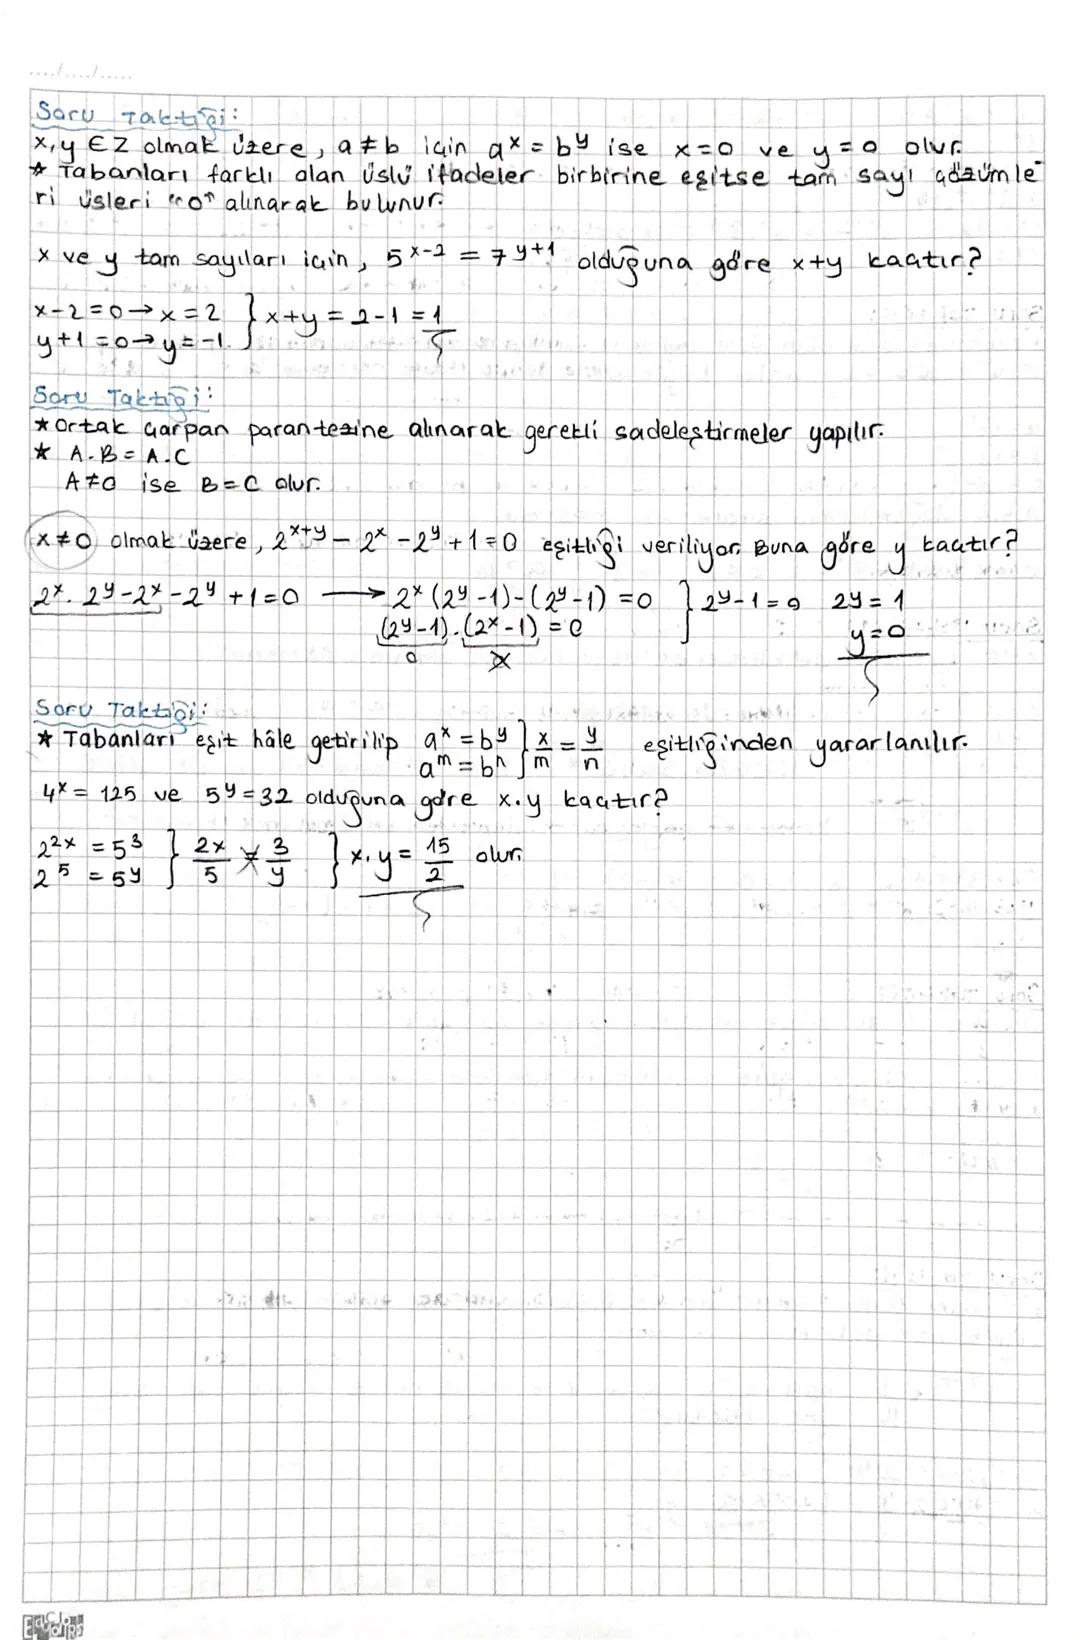 ..../..../.....
Soru Taktiği:
x,y ∈ Z olmak üzere, a≠b için aˣ = bʸ ise x=0 ve y=0 olur.
* Tabanları farklı olan üslü ifadeler birbirine eşitse tam sayı çözümle
ri üsleri "0" alınarak bulunur.
x ve y tam sayıları için, 5ˣ⁻² = 7ʸ⁺¹ olduğuna göre x+y kaçtır?
x-2=0→x=2 } x+y = 2-1 = 1
y+1=0→y=-1.
Soru Taktiği:
* Ortak çarpan parantezine alınarak gerekli sadeleştirmeler yapılır.
* A.B = A.C
A≠0 ise B=C olur.
x≠0 olmak üzere, 2ˣ⁺ʸ - 2ˣ - 2ʸ + 1 = 0 eşitliği veriliyor. Buna göre y kaçtır?
2ˣ. 2ʸ - 2ˣ - 2ʸ + 1 = 0 → 2ˣ (2ʸ - 1) - (2ʸ - 1) = 0 } 2ʸ - 1 = 0 2ʸ = 1
(2ʸ - 1) . (2ˣ - 1) = 0 y=0
0
Soru Taktiği:
* Tabanları eşit hâle getirilip aˣ = bʸ } x/m = y/n eşitliğinden yararlanılır.
aᵐ = bⁿ
4ˣ = 125 ve 5ʸ = 32 olduğuna göre x.y kaçtır?
2²ˣ = 5³ } 2x/5 = 3/y } x.y = 15/2 olur.
2⁵ = 5ʸ